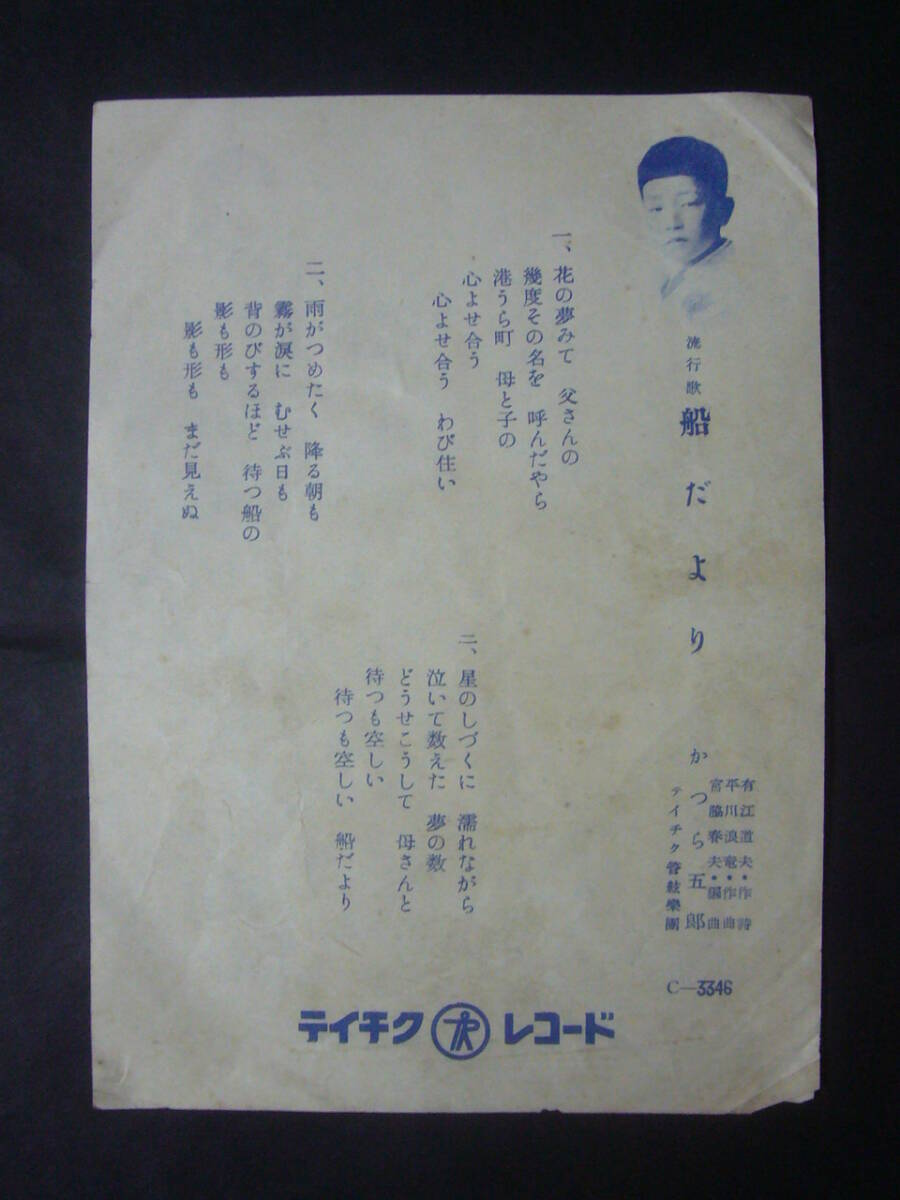 流行歌 船だより
有江道夫・作詩
平川浪竜・作曲
宮脇春夫・編曲
かつら五郎
テイチク管絃樂團
C—3346
一、花の夢みて 父さんの
幾度その名を 呼んだやら
港うら町 母と子の
心よせ合う
心よせ合う わび住い
二、雨がつめたく 降る朝も
霧が涙に むせぶ日も
背のびするほど 待つ船の
影も形も
影も形も まだ見えぬ
三、星のしづくに 濡れながら
泣いて数えた 夢の数
どうせこうして 母さんと
待つも空しい
待つも空しい 船だより
テイチク レコード